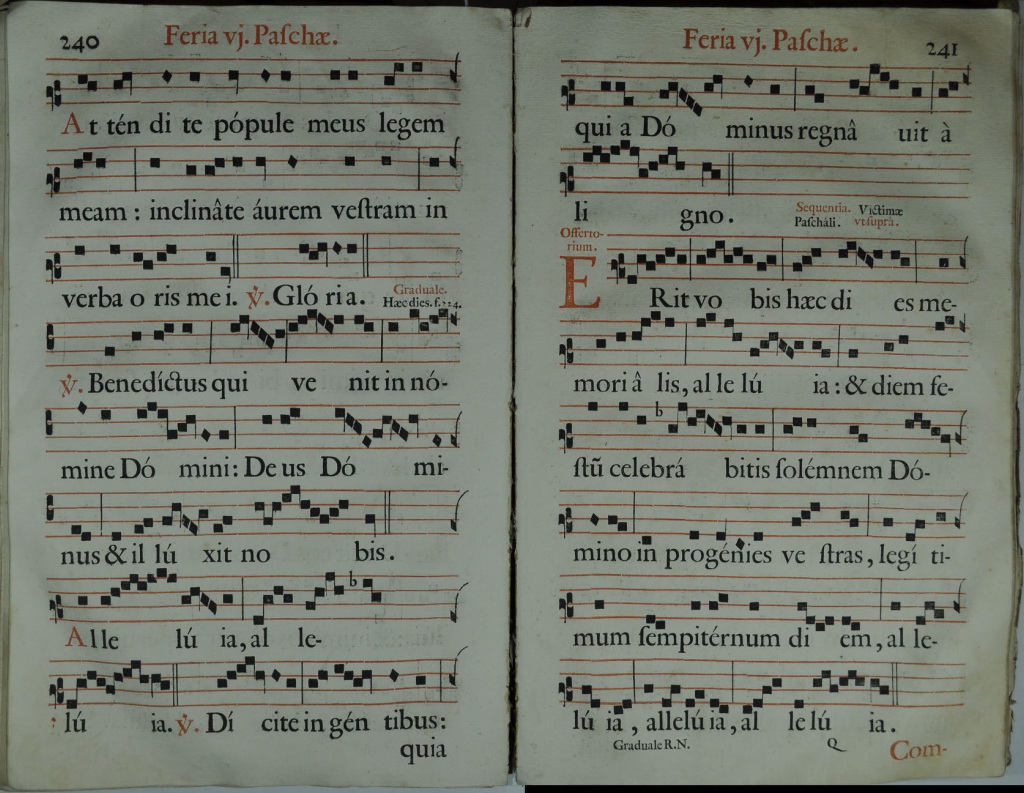 240
Feria vj. Paſchæ.
At tén di te pópule meus legem
meam : inclinâte áurem veſtram in
verba o ris me i. ℣. Gló ri a. Graduale.
Hæc dies. f.
℣. Benedíctus qui ve nit in nó-
mine Dó mini: De us Dó mi-
nus & il lú xit no bis.
b
Alle lú ia, al le-
lú ia. ℣. Dí cite in gén tibus:
quia
Feria vj. Paſchæ.
241
qui a Dó minus regnâ uit à
li gno. Sequentia. Victimæ
Paſchâli. vt ſupra.
Offerto-
rium.
ERit vo bis hæc di es me-
mori â lis, al le lú ia: & diem fe-
b
ſtũ celebrá bitis ſolémnem Dó-
mino in progénies ve ſtras, legí ti-
mum ſempitérnum di em, al le-
lú ia, allelú ia, al le lú ia.
Graduale R.N.
Q
Com-